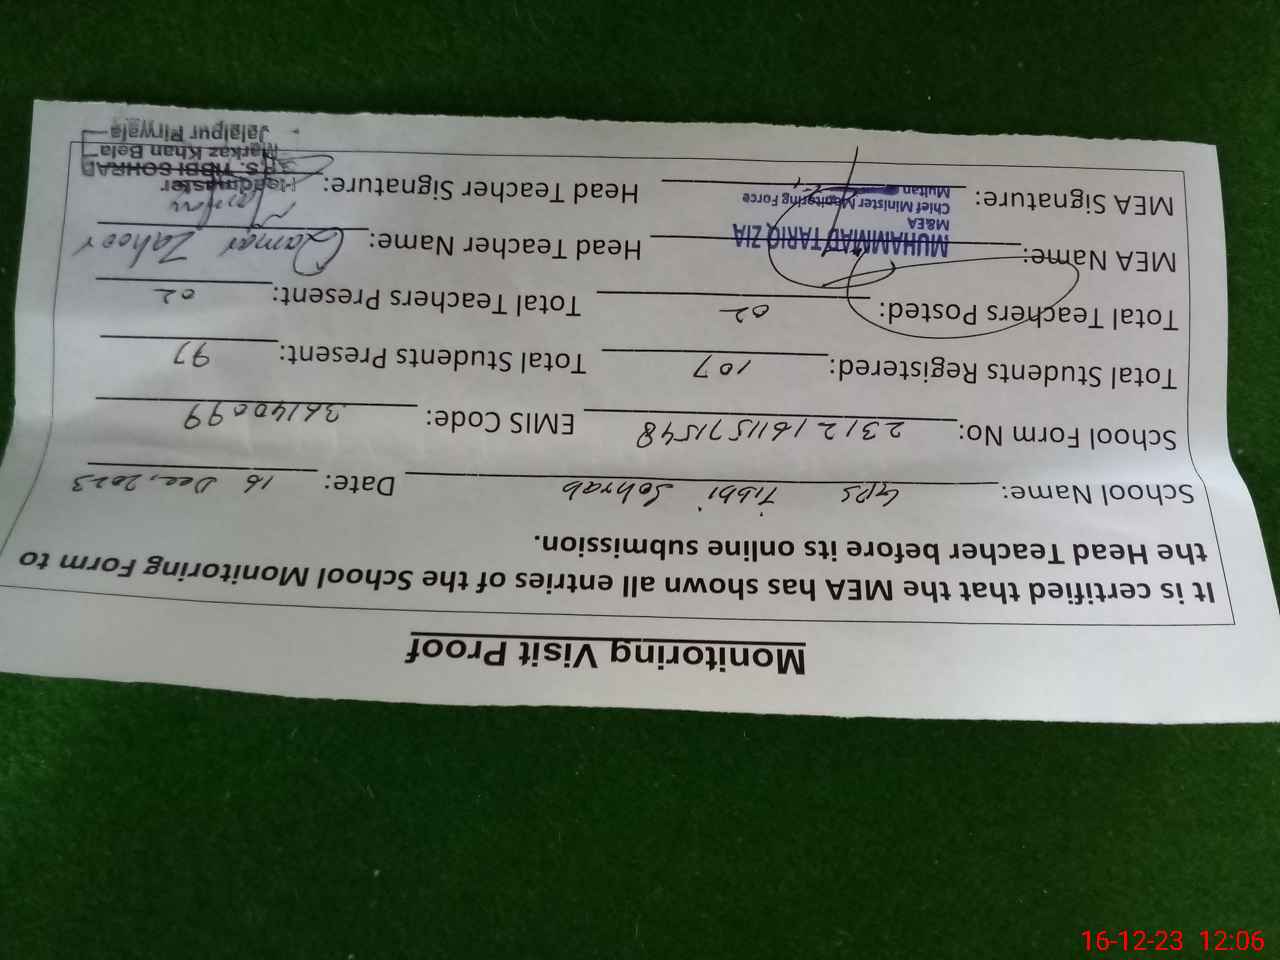 Monitoring Visit Proof
It is certified that the MEA has shown all entries of the School Monitoring Form to
the Head Teacher before its online submission.
School Name: GPS Tibbi Sohrab Date: 16 Dec, 2023
School Form No: 23121611571548 EMIS Code: 36140099
Total Students Registered: 107 Total Students Present: 97
Total Teachers Posted: 02 Total Teachers Present: 02
MEA Name: MUHAMMAD TARIQ ZIA Head Teacher Name: Qamar Zahoor
M&EA
Chief Minister Monitoring Force
Multan
MEA Signature: Head Teacher Signature:
Headmaster
G.P.S. TIBBI SOHRAB
Markaz Khan Bela
Jalalpur Pirwala
16-12-23 12:06